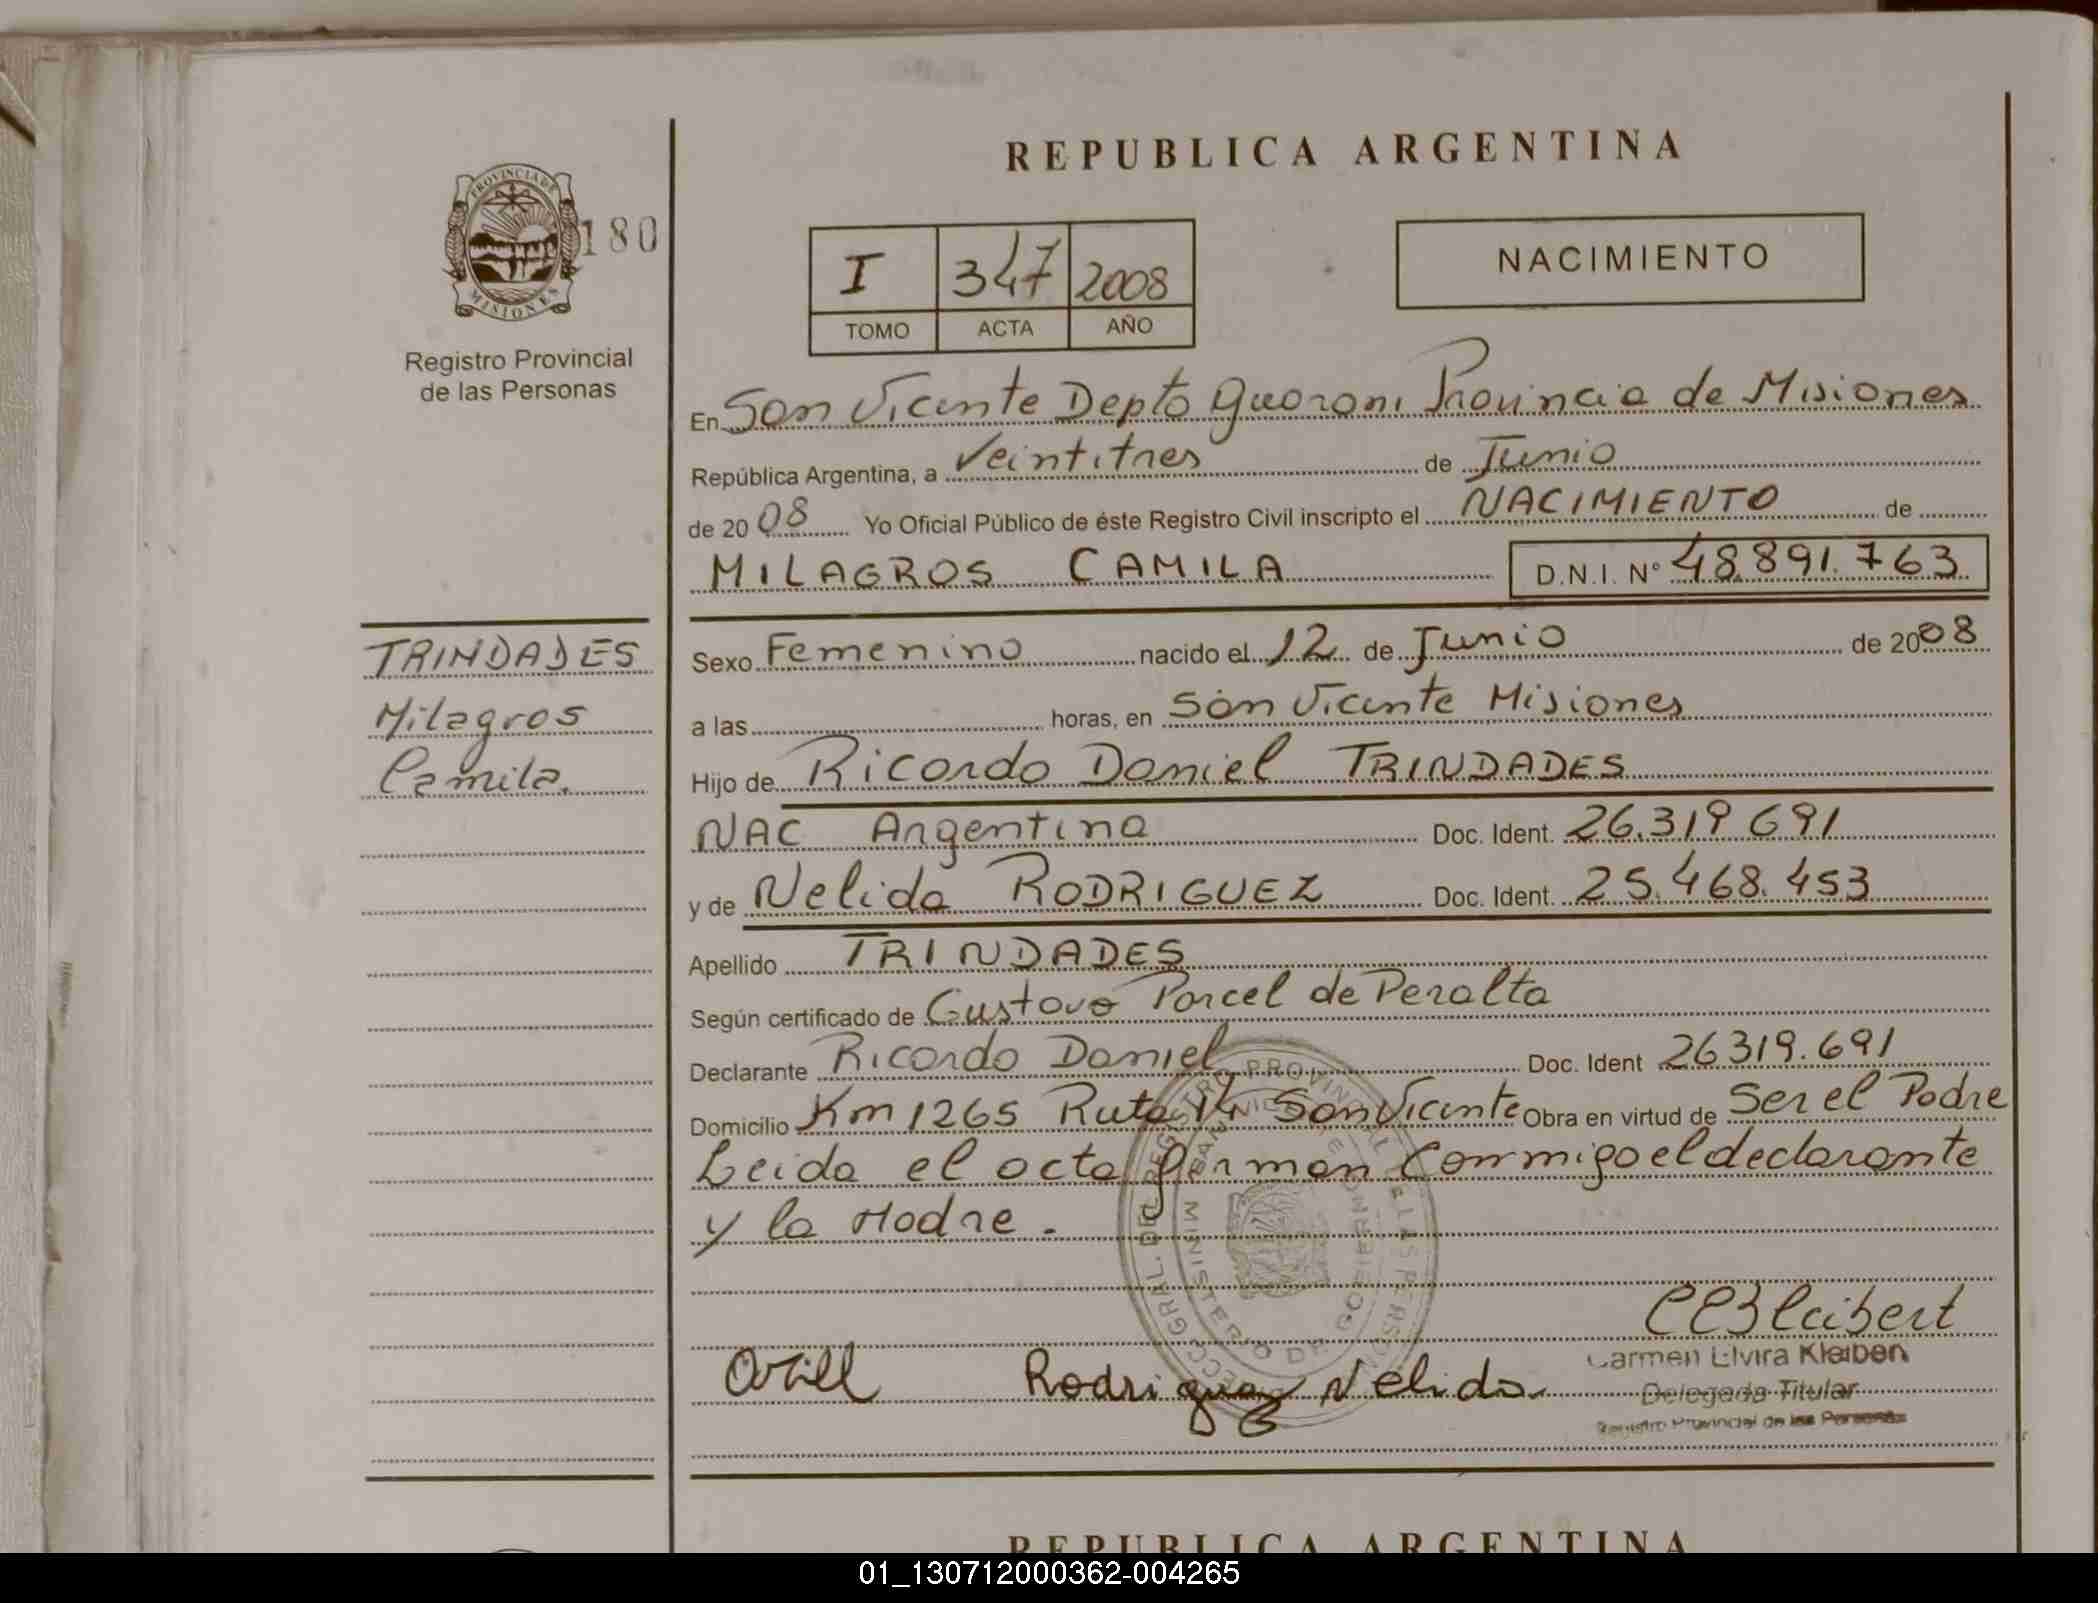 REPUBLICA ARGENTINA
PROVINCIA DE
MISIONES
180
Registro Provincial
de las Personas
I 347 2008
TOMO ACTA AÑO
NACIMIENTO
En San Vicente Depto Guarani Provincia de Misiones
República Argentina, a Veintitres de Junio
de 2008 Yo Oficial Público de éste Registro Civil inscripto el NACIMIENTO de
MILAGROS CAMILA D.N.I. Nº 48.891.763
TRINDADES
Milagros
Camila.
Sexo Femenino nacido el 12 de Junio de 2008
a las horas, en San Vicente Misiones
Hijo de Ricardo Daniel TRINDADES
NAC Argentina Doc. Ident. 26.319 691
y de Nelida RODRIGUEZ Doc. Ident. 25.468.453
Apellido TRINDADES
Según certificado de Gustavo Porcel de Peralta
Declarante Ricardo Daniel Doc. Ident 26319.691
Domicilio Km 1265 Ruta 14 San Vicente Obra en virtud de Ser el Padre
Leida el acta firman Conmigo el declarante
y la Madre.
MINISTERIO DE GOBIERNO
Rodriguez Nelida
Carmen Elvira Kleibert
Delegada Titular
Registro Provincial de las Personas
REPUBLICA ARGENTINA
01_130712000362-004265